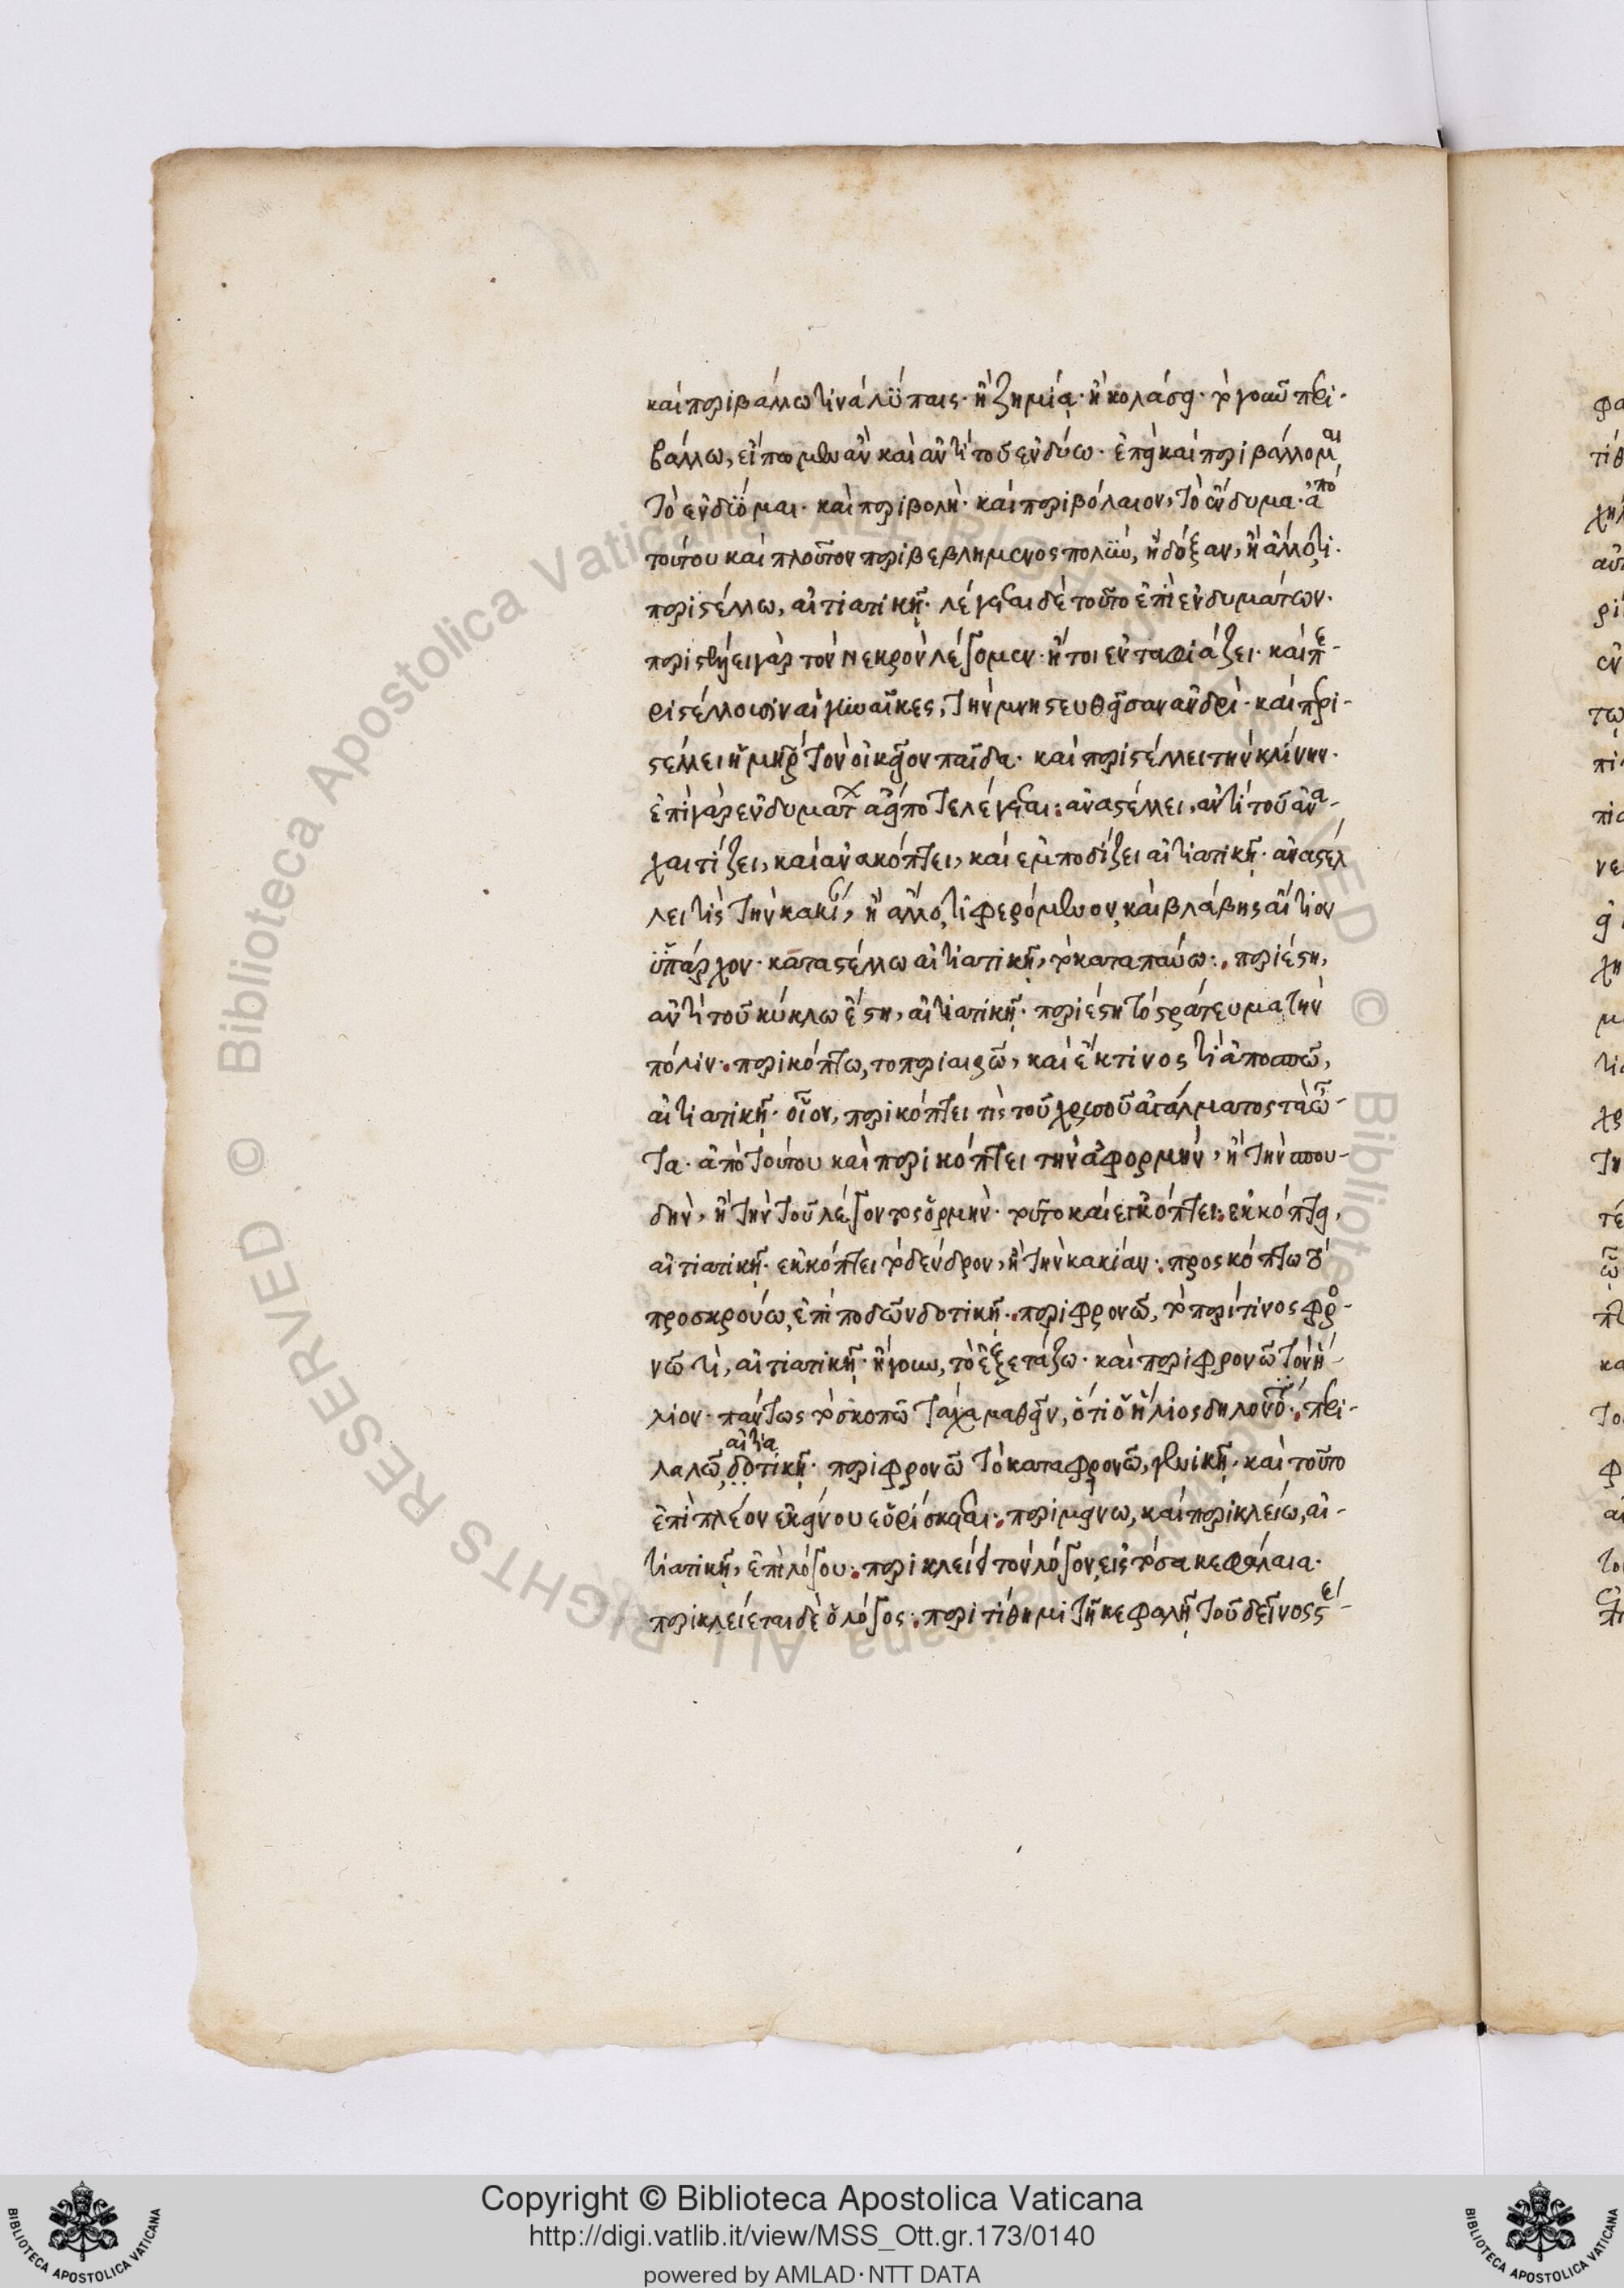 καὶ περιβάλλω τινὰ λύπαις· ἢ ζημία· ἢ κολάσει· τὸ γοῦν περι-
βάλλω, εἴποιμεν ἂν καὶ ἀντὶ τοῦ ἐνδύω· ἐπεὶ καὶ περιβάλλομαι
τὸ ἐνδύομαι· καὶ περιβολὴ· καὶ περιβόλαιον, τὸ ἔνδυμα· ἀπὸ
τούτου καὶ πλοῦτον περιβεβλημένος πολὺν, ἢ δόξαν, ἢ ἄλλό τι.
περιστέλλω, αἰτιατικῇ· λέγεται δὲ τοῦτο ἐπὶ ἐνδυμάτων·
περιστέλλει γὰρ τὸν νεκρὸν λέγομεν· ἤτοι ἐνταφιάζει· καὶ πε-
ριστέλλουσιν αἱ γυναῖκες, τὴν μνηστευθεῖσαν ἀνδρὶ· καὶ περι-
στέλλει ἡ μήτηρ τὸν οἰκεῖον παῖδα· καὶ περιστέλλει τὴν κλίνην·
ἐπὶ γὰρ ἐνδυμάτων ἀεί ποτε λέγεται: ἀναστέλλει, ἀντὶ τοῦ ἀνα-
χαιτίζει, καὶ ἀνακόπτει, καὶ ἐμποδίζει αἰτιατικῇ· ἀναστέλ
λει τὶς τὴν κακίαν, ἢ ἄλλο τι φερόμενον καὶ βλάβης αἴτιον
ὑπάρχον· καταστέλλω αἰτιατικῇ, τὸ καταπαύω: περιέστη,
ἀντὶ τοῦ κύκλω ἔστη, αἰτιατικῇ· περιέστη τὸ στράτευμα τὴν
πόλιν· περικόπτω, τὸ περιαιρῶ, καὶ ἔκ τινος τὶ ἀποσπῶ,
αἰτιατικῇ· οἷον, περικόπτει τὶς τοῦ χρυσοῦ ἀγάλματος τὰ ὦ-
τα· ἀπὸ τούτου καὶ περικόπτει τὴν ἀφορμὴν, ἢ τὴν σπου-
δὴν, ἢ τὴν τοῦ λέγοντος ὁρμὴν· τοῦτο καὶ ἐγκόπτει: ἐκκόπτει,
αἰτιατικῇ· ἐκκόπτει τὸ δένδρον, ἢ τὴν κακίαν: προσκόπτω τὸ
προσκρούω, ἐπὶ ποδῶν δοτικῇ: περιφρονῶ, τὸ περί τινος φρο-
νῶ τὶ, αἰτιατικῇ· ἤγουν, τὸ ἐξετάζω· καὶ περιφρονῶ τὸν ἥ-
λιον· πάντως τὸ σκοπῶ τάχα μαθεῖν, ὅτι ὁ ἥλιος δηλονότι: περι-
λαλῶ, δοτικῇ· αἰτια περιφρονῶ τὸ καταφρονῶ, γενικῇ· καὶ τοῦτο
ἐπὶ πλέον ἐκείνου εὑρίσκεται: περιμένω, καὶ περικλείω, αἰ-
τιατικῇ, ἐπὶ λόγου: περικλείει τὸν λόγον εἰς τόσα κεφάλαια·
περικλείεται δὲ ὁ λόγος: περιτίθημι τῇ κεφαλῇ τοῦ δεῖνος στέ-
Copyright © Biblioteca Apostolica Vaticana
http://digi.vatlib.it/view/MSS_Ott.gr.173/0140
powered by AMLAD·NTT DATA